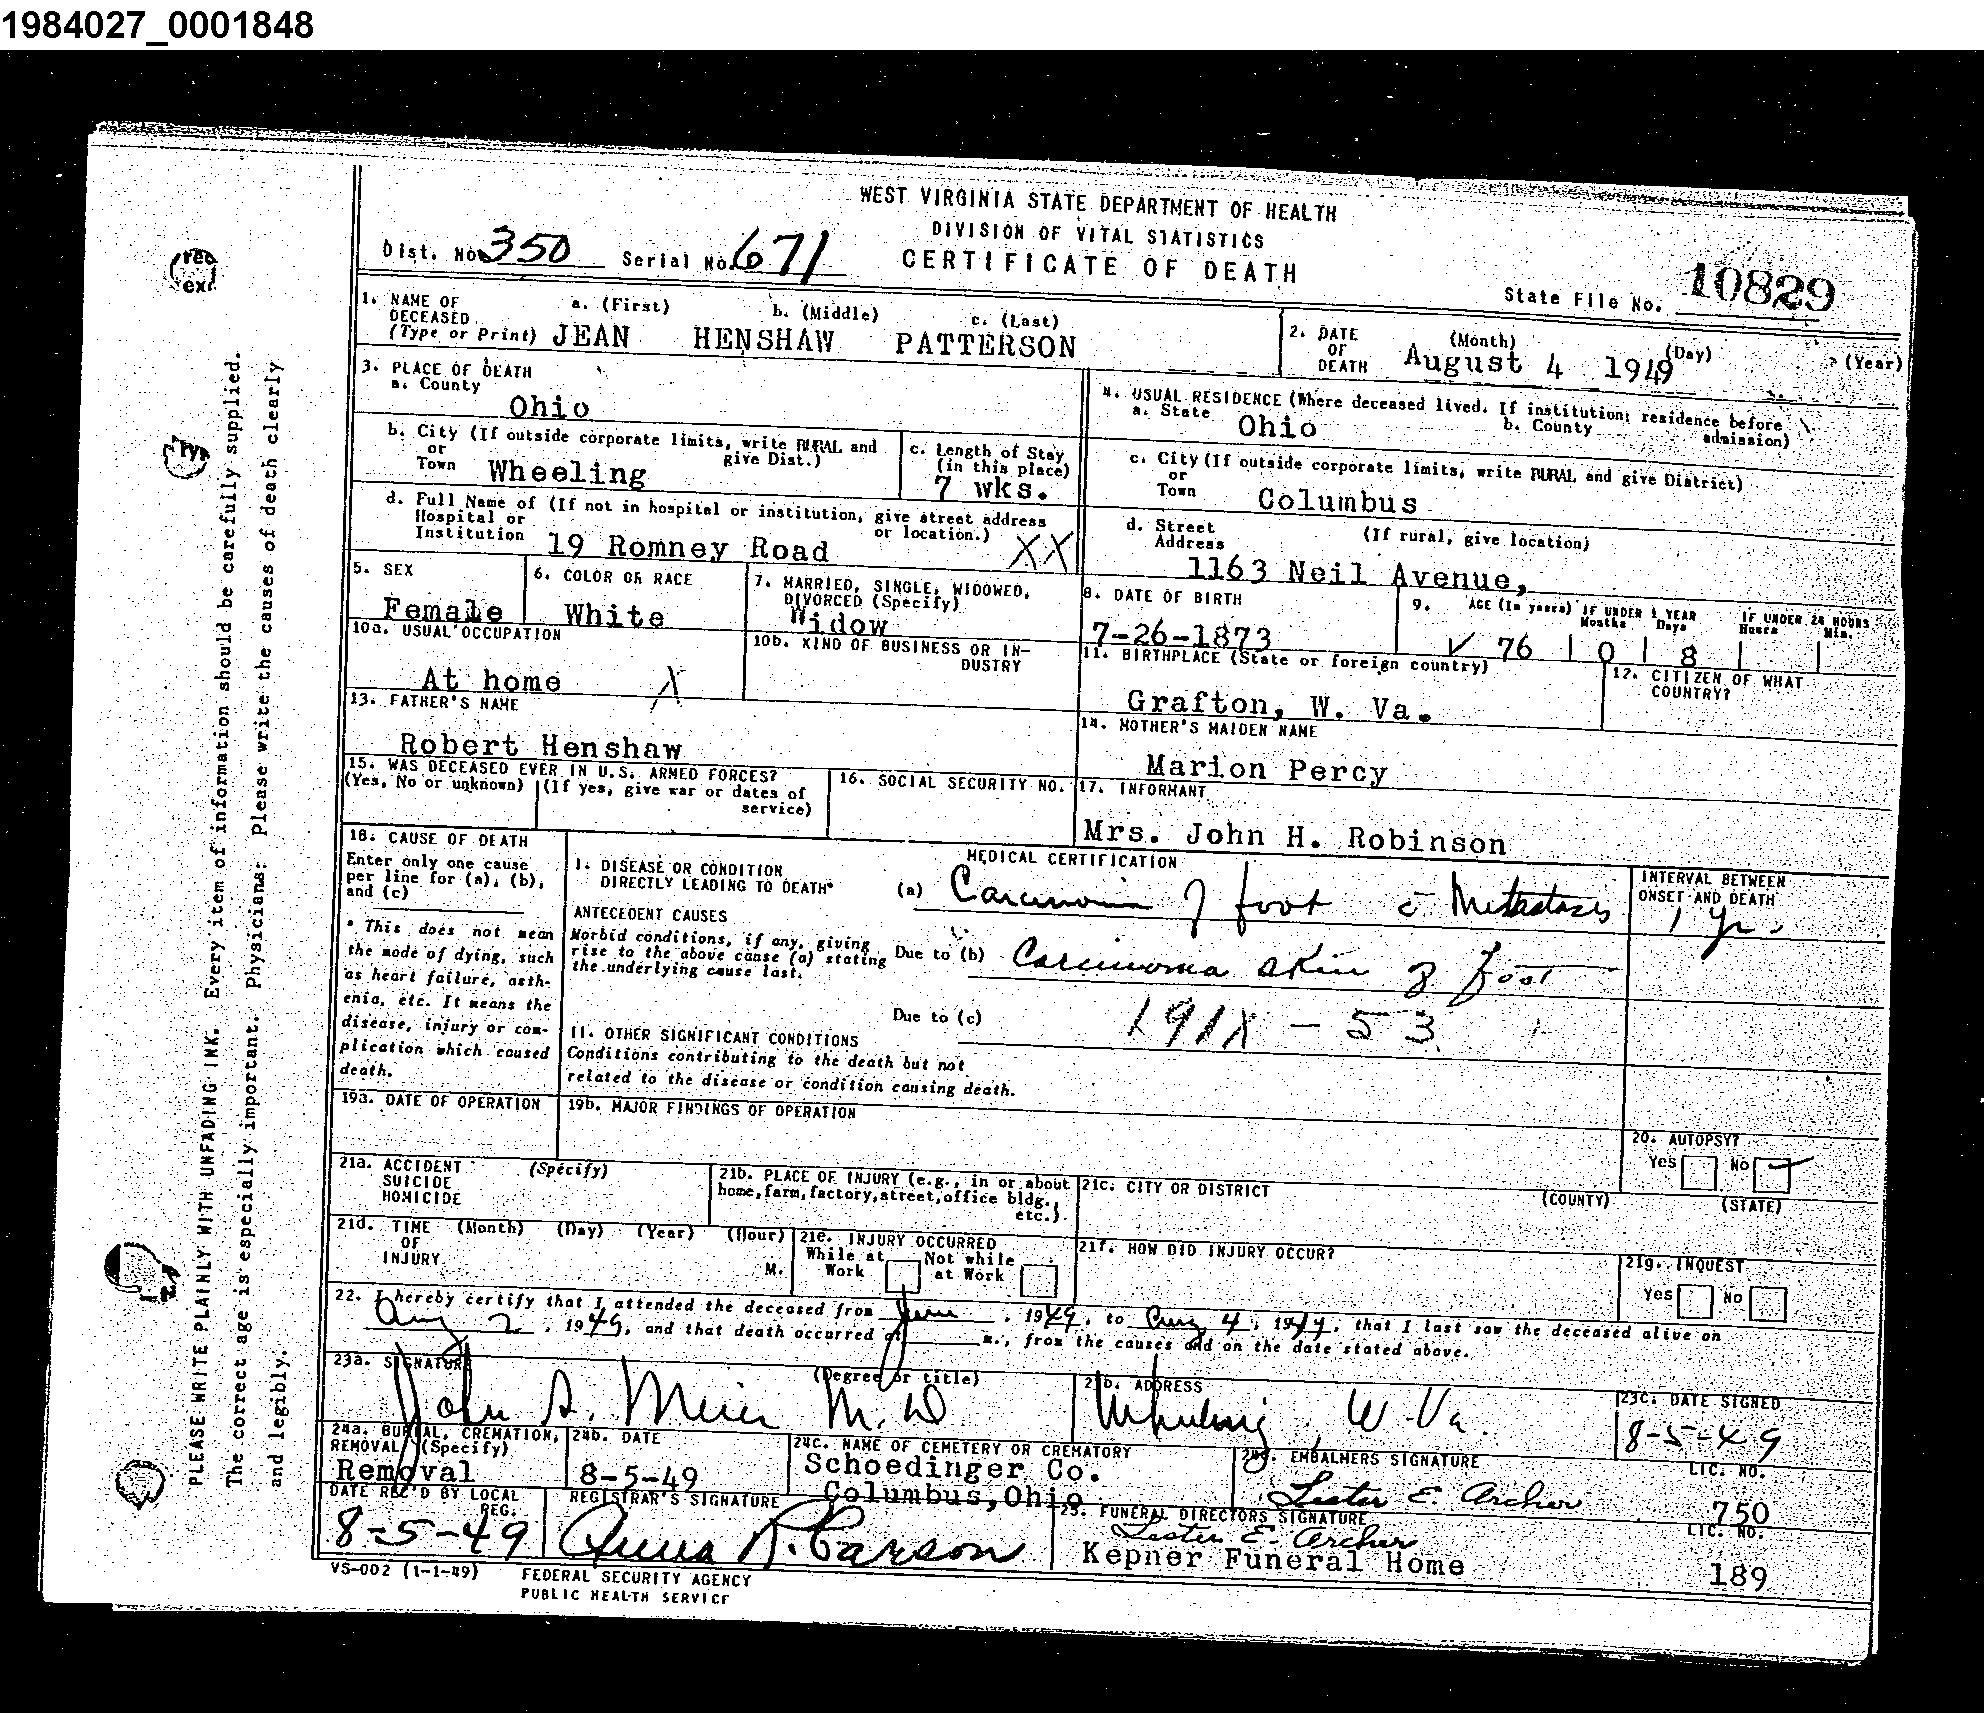 1984027_0001848
WEST VIRGINIA STATE DEPARTMENT OF HEALTH
DIVISION OF VITAL STATISTICS
CERTIFICATE OF DEATH
Dist. No. 350 Serial No. 671
State File No. 10829
1. NAME OF DECEASED (Type or Print)
a. (First) b. (Middle) c. (Last)
JEAN HENSHAW PATTERSON
2. DATE OF DEATH (Month) (Day) (Year)
August 4 1949
3. PLACE OF DEATH
a. County
Ohio
b. City (If outside corporate limits, write RURAL and give Dist.)
or Town Wheeling
c. Length of Stay (in this place)
7 wks.
d. Full Name of (If not in hospital or institution, give street address or location.)
Hospital or Institution 19 Romney Road XX
4. USUAL RESIDENCE (Where deceased lived. If institution; residence before admission)
a. State Ohio b. County
c. City (If outside corporate limits, write RURAL and give District)
or Town Columbus
d. Street Address (If rural, give location)
1163 Neil Avenue,
5. SEX
Female
6. COLOR OR RACE
White
7. MARRIED, SINGLE, WIDOWED, DIVORCED (Specify)
Widow
8. DATE OF BIRTH
7-26-1873
9. AGE (In years) IF UNDER 1 YEAR Months Days IF UNDER 24 HOURS Hours Min.
✓ 76 0 8
10a. USUAL OCCUPATION
At home X
10b. KIND OF BUSINESS OR INDUSTRY
11. BIRTHPLACE (State or foreign country)
Grafton, W. Va.
12. CITIZEN OF WHAT COUNTRY?
13. FATHER'S NAME
Robert Henshaw
14. MOTHER'S MAIDEN NAME
Marion Percy
15. WAS DECEASED EVER IN U.S. ARMED FORCES?
(Yes, No or unknown) (If yes, give war or dates of service)
16. SOCIAL SECURITY NO.
17. INFORMANT
Mrs. John H. Robinson
18. CAUSE OF DEATH
Enter only one cause per line for (a), (b), and (c)
* This does not mean the mode of dying, such as heart failure, asthenia, etc. It means the disease, injury or complication which caused death.
MEDICAL CERTIFICATION
I. DISEASE OR CONDITION DIRECTLY LEADING TO DEATH*
(a) Carcinoma of foot c Metastases
INTERVAL BETWEEN ONSET AND DEATH
1 yr.
ANTECEDENT CAUSES
Morbid conditions, if any, giving rise to the above cause (a) stating the underlying cause last.
Due to (b) Carcinoma skin of foot
Due to (c)
191X - 53
II. OTHER SIGNIFICANT CONDITIONS
Conditions contributing to the death but not related to the disease or condition causing death.
19a. DATE OF OPERATION
19b. MAJOR FINDINGS OF OPERATION
20. AUTOPSY?
Yes No ✓
21a. ACCIDENT SUICIDE HOMICIDE (Specify)
21b. PLACE OF INJURY (e.g., in or about home, farm, factory, street, office bldg., etc.)
21c. CITY OR DISTRICT (COUNTY) (STATE)
21d. TIME OF INJURY (Month) (Day) (Year) (Hour) M.
21e. INJURY OCCURRED
While at Work Not while at Work
21f. HOW DID INJURY OCCUR?
21g. INQUEST
Yes No
22. I hereby certify that I attended the deceased from June, 1949, to Aug 4, 1949, that I last saw the deceased alive on
Aug 2, 1949, and that death occurred at m., from the causes and on the date stated above.
23a. SIGNATURE (Degree or title)
John A. Meier M.D
23b. ADDRESS
Wheeling, W. Va.
23c. DATE SIGNED
8-5-49
24a. BURIAL, CREMATION, REMOVAL (Specify)
Removal
24b. DATE
8-5-49
24c. NAME OF CEMETERY OR CREMATORY
Schoedinger Co.
Columbus, Ohio
24d. EMBALMERS SIGNATURE LIC. NO.
Lester E. Archer 750
DATE REC'D BY LOCAL REG.
8-5-49
REGISTRAR'S SIGNATURE
Anna R. Carson
25. FUNERAL DIRECTORS SIGNATURE LIC. NO.
Lester E. Archer
Kepner Funeral Home 189
VS-002 (1-1-49) FEDERAL SECURITY AGENCY
PUBLIC HEALTH SERVICE
PLEASE WRITE PLAINLY WITH UNFADING INK. Every item of information should be carefully supplied.
The correct age is especially important. Physicians: Please write the causes of death clearly
and legibly.